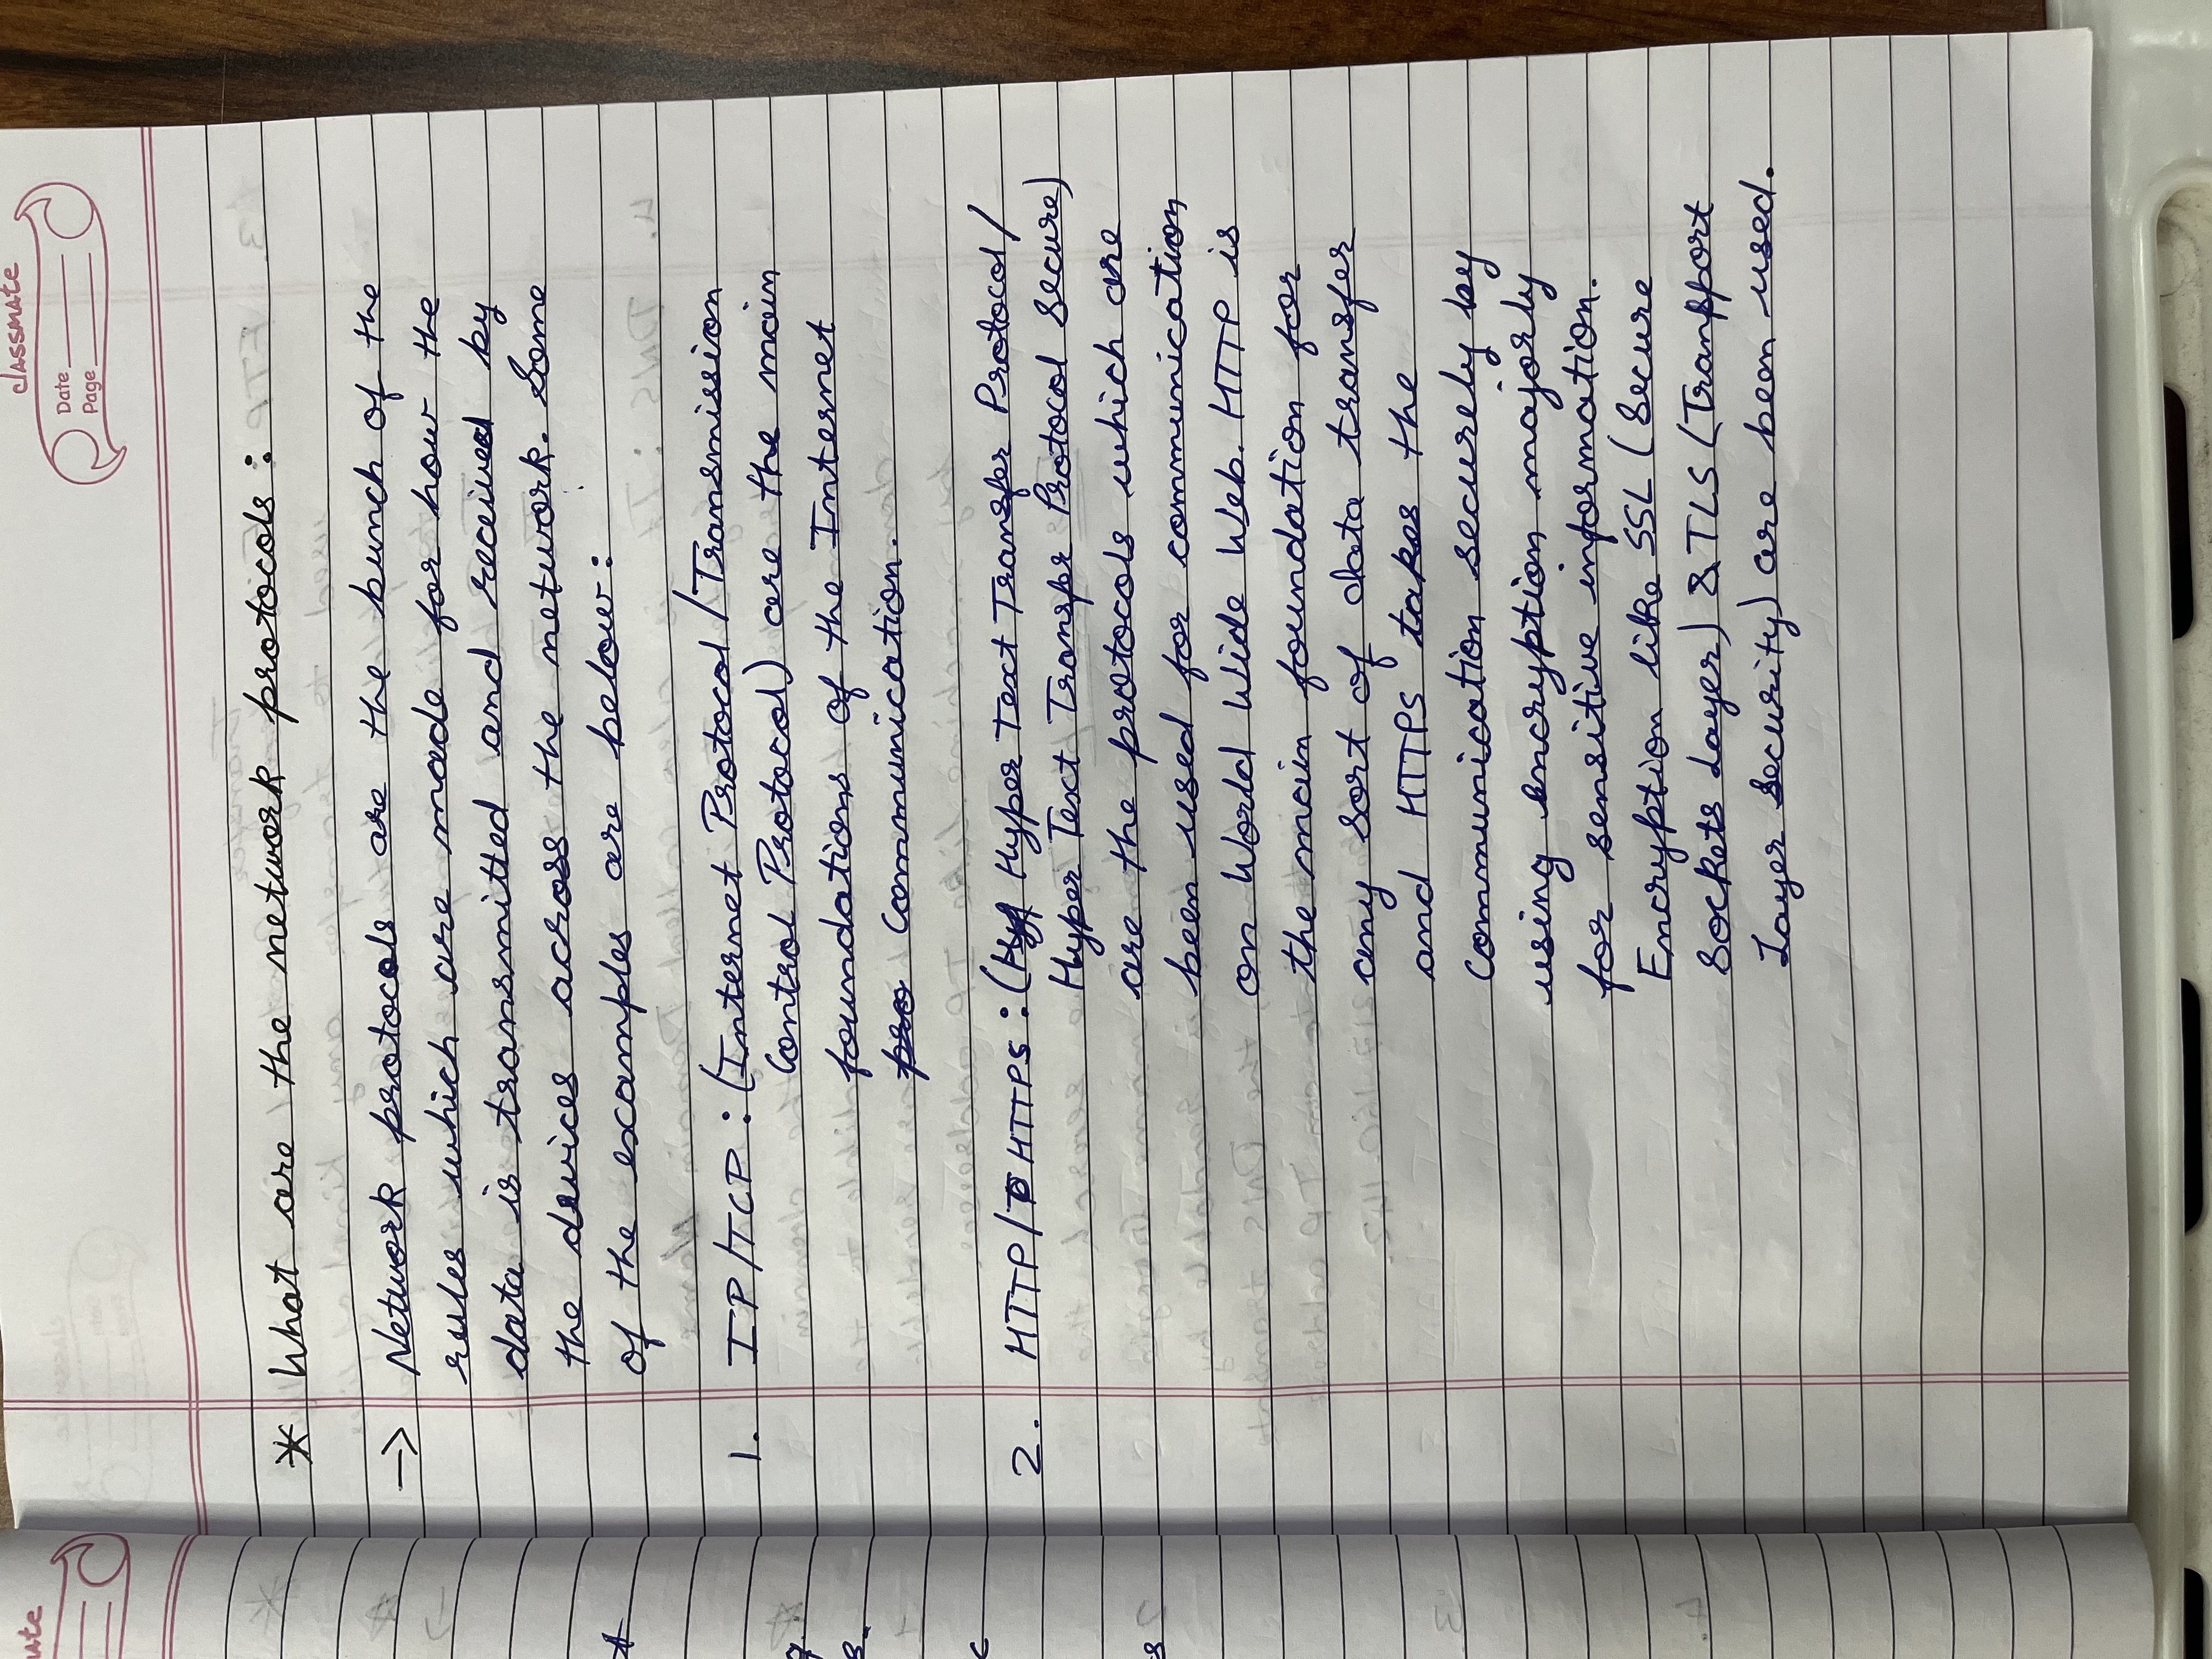 classmate
Date
Page
* What are the network protocols :
→ Network protocols are the bunch of the
rules which are made for how the
data is transmitted and received by
the devices across the network. Some
of the examples are below :
1. IP/TCP : (Internet Protocol / Transmission
Control Protocol) are the main
foundations of the Internet
pro Communication.
2. HTTP/ HTTPS : (Hyper Text Transfer Protocol /
Hyper Text Transfer Protocol Secure)
are the protocols which are
been used for communication
on World Wide Web. HTTP is
the main foundation for
any sort of data transfer
and HTTPS takes the
Communication securely by
using encryption majorly
for sensitive information.
Encryption like SSL (Secure
Sockets Layer) & TLS (Transport
Layer Security) are been used.